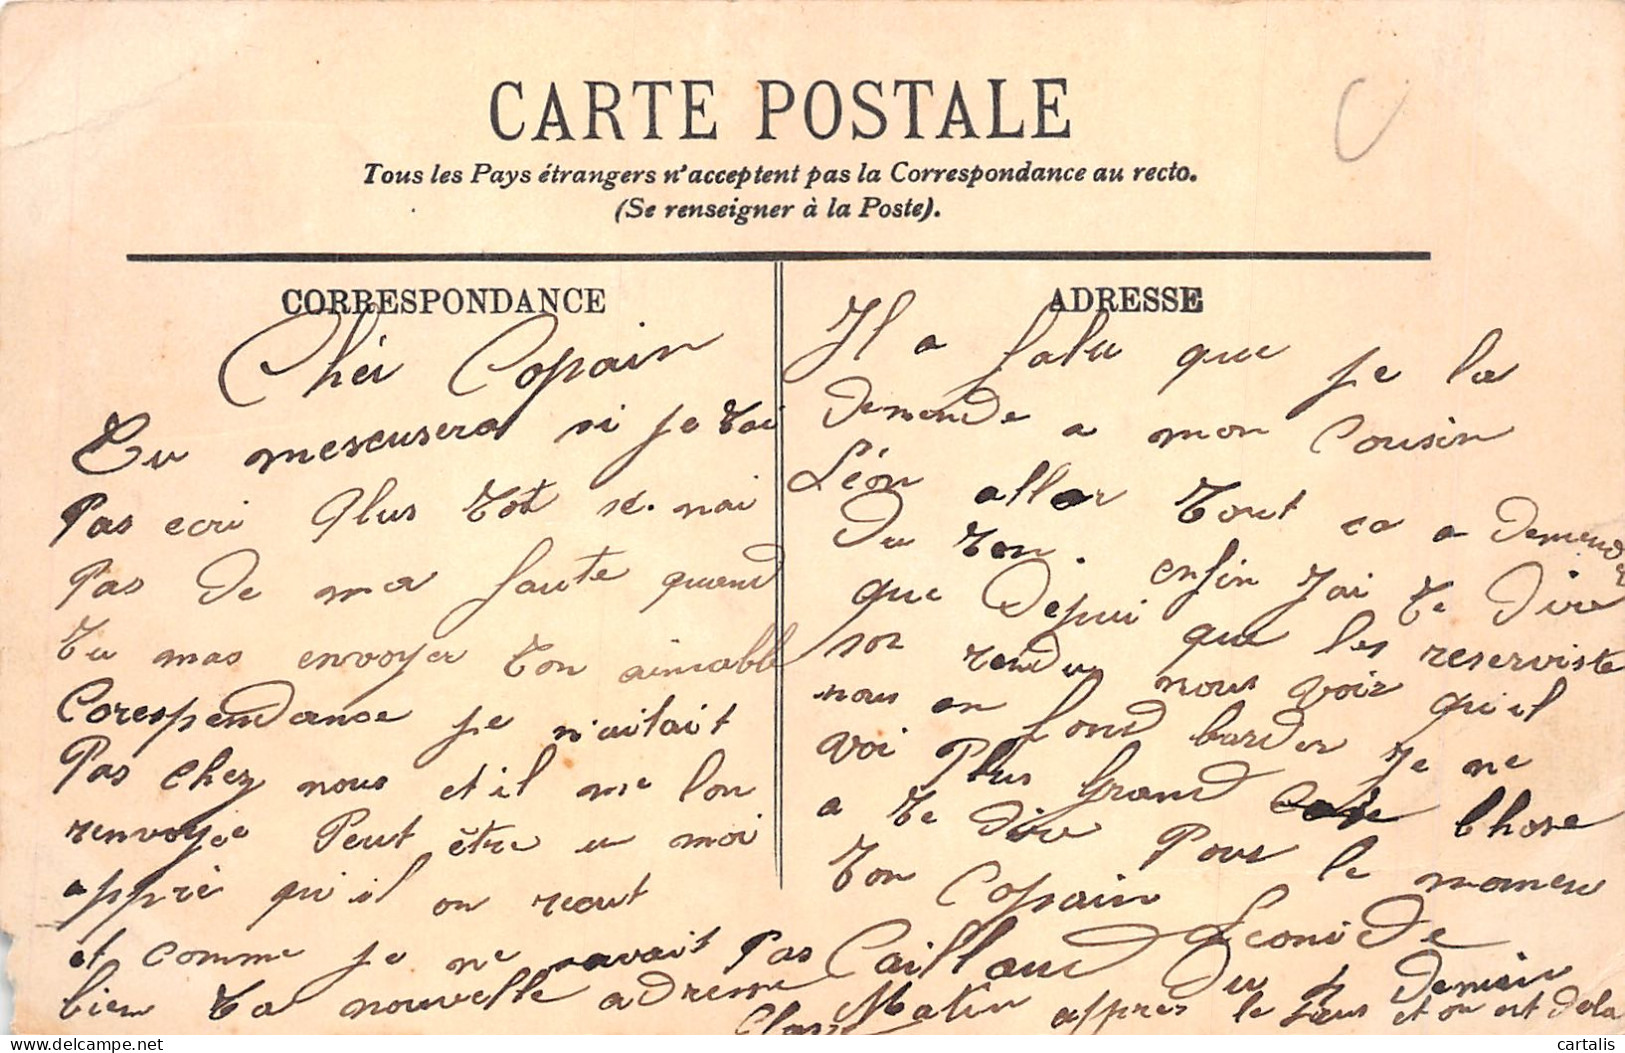 CARTE POSTALE
Tous les Pays étrangers n'acceptent pas la Correspondance au recto.
(Se renseigner à la Poste).
CORRESPONDANCE
Cher Copain
Tu mescusera si je tai
pas ecri plus tot sé. nai
pas de ma faute quand
tu mas envoyer ton aimable
Corespondanse je n'aitait
pas chez nous et il me lon
renvoyée peut être u moi
appré qu'il on reçut
et comme je ne savait pas
bien ta nouvelle adresse
ADRESSE
Il a falu que je la
demande a mon Cousin
Léon aller tout ca a demendé
du ten. enfin Jai te dire
que depui que les reserviste
son rendu nous voiz qu'il
nous en fond barder je ne
voi plus grand chose
a te dire pour le momen
ton Copain Leonide
Caillaud du 4 demain
Matin appres le Jus et on est dela
Classe
cartalis
www.delcampe.net